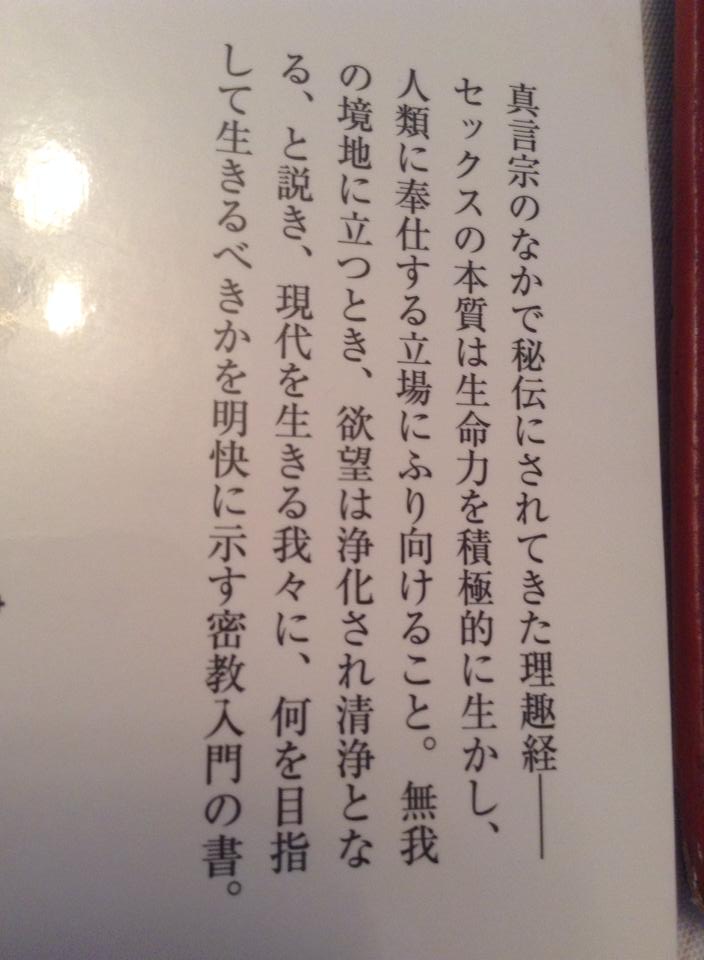 真言宗のなかで秘伝にされてきた理趣経――
セックスの本質は生命力を積極的に生かし、
人類に奉仕する立場にふり向けること。無我
の境地に立つとき、欲望は浄化され清浄とな
る、と説き、現代を生きる我々に、何を目指
して生きるべきかを明快に示す密教入門の書。